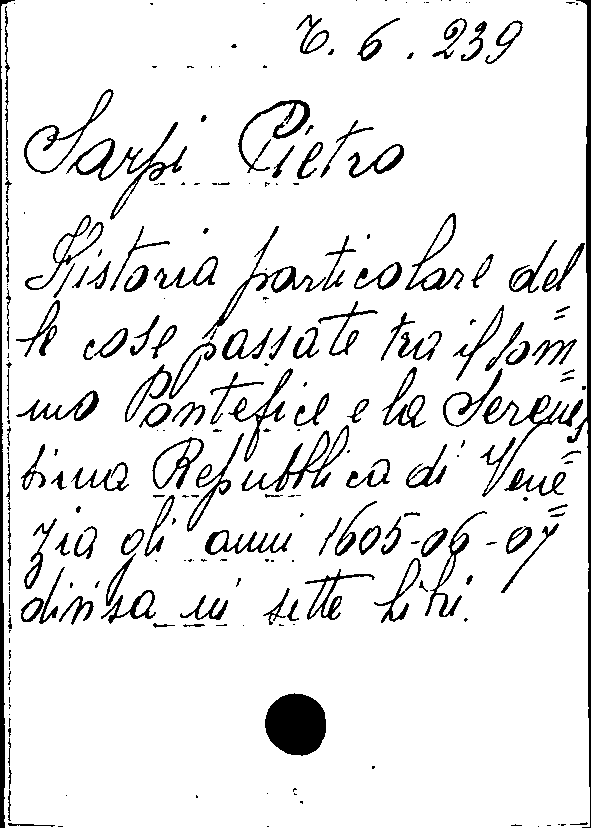 T. 6. 239
Sarpi Pietro
Historia particolare del=
le cose passate tra il som=
mo Pontefice e la Serenis
sima Repubblica di Vene=
zia gli anni 1605-06-07
divisa in sette libri.